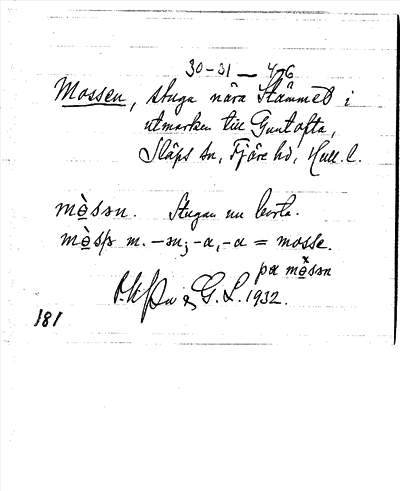 30-31 — 4-6
Mossen, stuga nära Stämmet i
utmarken till Guntofta,
Släps sn, Fjäre hd, Hall. l.
mòsən. Stugan nu borta.
m. -ən; -a, -a = mosse.
pa mòsən
G. L. 1932.
181